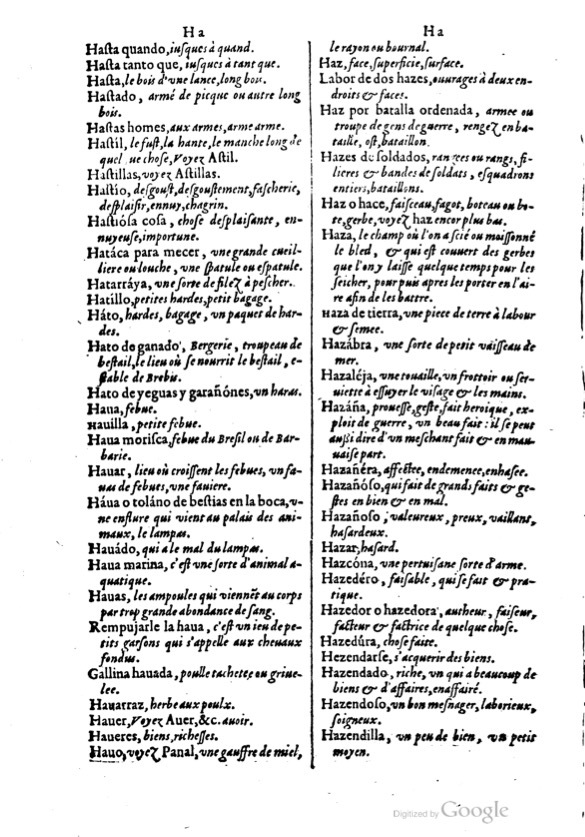 Ha
Hasta quando, iusques à quand.
Hasta tanto que, iusques à tant que.
Hasta, le bois d'vne lance, long bois.
Hastado, armé de picque ou autre long
bois.
Hastas homes, aux armes, arme arme.
Hastíl, le fust, la hante, le manche long de
quelque chose, Voyez Astil.
Hastillas, voyez Astillas.
Hastío, desgoust, desgoustement, fascherie,
desplaisir, ennuy, chagrin.
Hastiósa cosa, chose desplaisante, en-
nuyeuse, importune.
Hatáca para mecer, vne grande cueil-
liere ou louche, vne spatule ou espatule.
Hatarráya, vne sorte de filez à pescher.
Hatillo, petites hardes, petit bagage.
Háto, hardes, bagage, vn paquet de har-
des.
Hato de ganado, Bergerie, troupeau de
bestail, le lieu où se nourrit le bestail, e-
stable de Brebis.
Hato de yeguas y garañónes, vn haras.
Haua, febue.
Hauilla, petite febue.
Haua morisca, febue du Bresil ou de Bar-
barie.
Hauar, lieu où croissent les febues, vn fa-
uas de febues, vne fauiere.
Háua o toláno de bestias en la boca, v-
ne enflure qui vient au palais des ani-
maux, le lampas.
Hauádo, qui a le mal du lampas.
Haua marina, c'est vne sorte d'animal a-
quatique.
Hauas, les ampoules qui viennẽt au corps
par trop grande abondance de sang.
Rempujarle la haua, c'est vn ieu de pe-
tits garsons qui s'appelle aux cheuaux
fondus.
Gallina hauada, poulle tachetee ou griue-
lee.
Hauarraz, herbe aux poulx.
Hauer, Voyez Auer, &c. auoir.
Haueres, biens, richesses.
Hauo, voyez Panal, vne gauffre de miel,
Ha
le rayon ou bournal.
Haz, face, superficie, surface.
Labor de dos hazes, ouurages à deux en-
droits & faces.
Haz por batalla ordenada, armee ou
troupe de gens de guerre, rengez en ba-
taille, ost, bataillon.
Hazes de soldados, rangees ou rangs, fi-
lieres & bandes de soldats, esquadrons
entiers, bataillons.
Haz o hace, faisceau, fagot, boteau ou bo-
te, gerbe, voyez haz encor plus bas.
Haza, le champ où l'on a scié ou moissonné
le bled, & qui est couuert des gerbes
que l'on y laisse quelque temps pour les
seicher, pour puis apres les porter en l'ai-
re afin de les battre.
Haza de tierra, vne piece de terre à labour
& semee.
Hazábra, vne sorte de petit vaisseau de
mer.
Hazaléja, vne touaille, vn frottoir ou ser-
uiette à essuyer le visage & les mains.
Hazáña, prouesse, geste, fait heroique, ex-
ploit de guerre, vn beau fait : il se peut
aussi dire d'vn meschant fait & en mau-
uaise part.
Hazañéra, affettee, endemence, enhasee.
Hazañóso, qui fait de grands faits & ge-
stes en bien & en mal.
Hazañoso, valeureux, preux, vaillant,
hasardeux.
Hazar, hasard.
Hazcóna, vne pertuisane sorte d'arme.
Hazedéro, faisable, qui se fait & pra-
tique.
Hazedor o hazedora, autheur, faiseur,
facteur & factrice de quelque chose.
Hazedûra, chose faite.
Hezendarse, s'acquerir des biens.
Hazendado, riche, vn qui a beaucoup de
biens & d'affaires, enaffairé.
Hazendoso, vn bon mesnager, laborieux,
soigneux.
Hazendilla, vn peu de bien, vn petit
moyen.
Digitized by Google